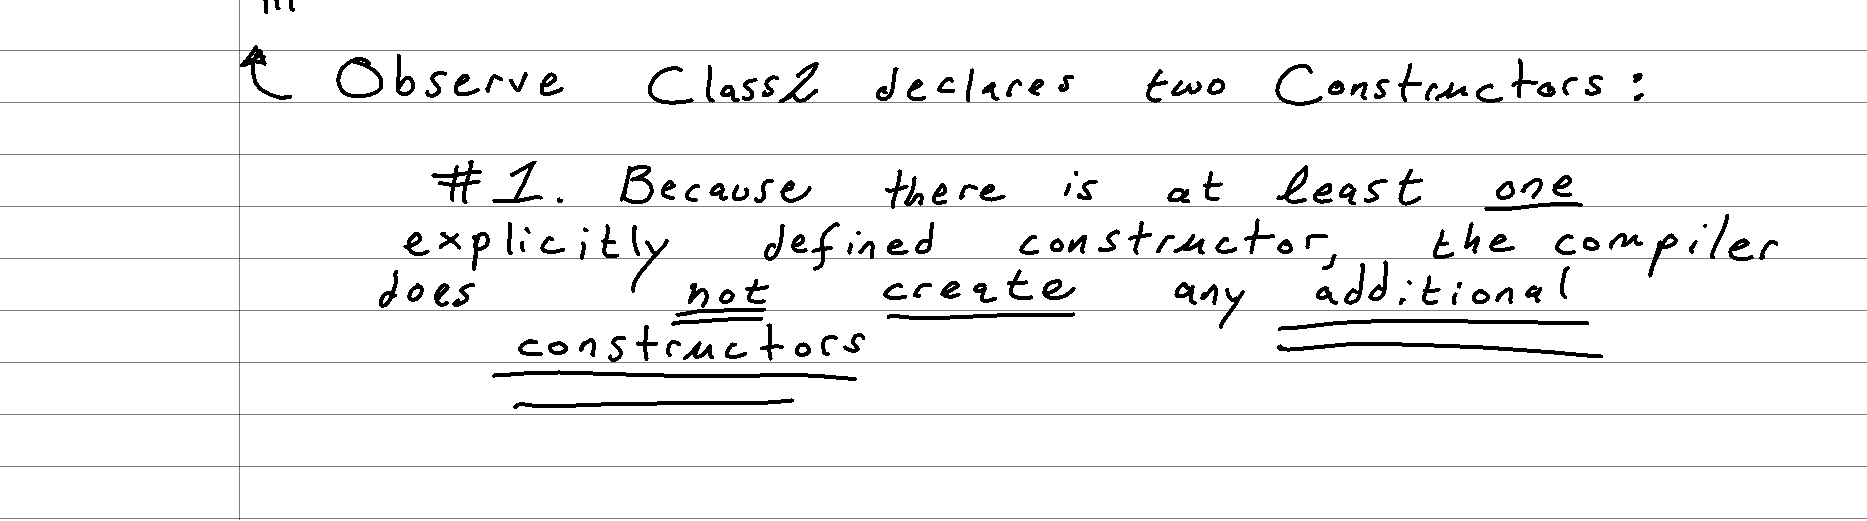 Observe Class2 declares two Constructors:
#1. Because there is at least one
explicitly defined constructor, the compiler
does not create any additional
constructors